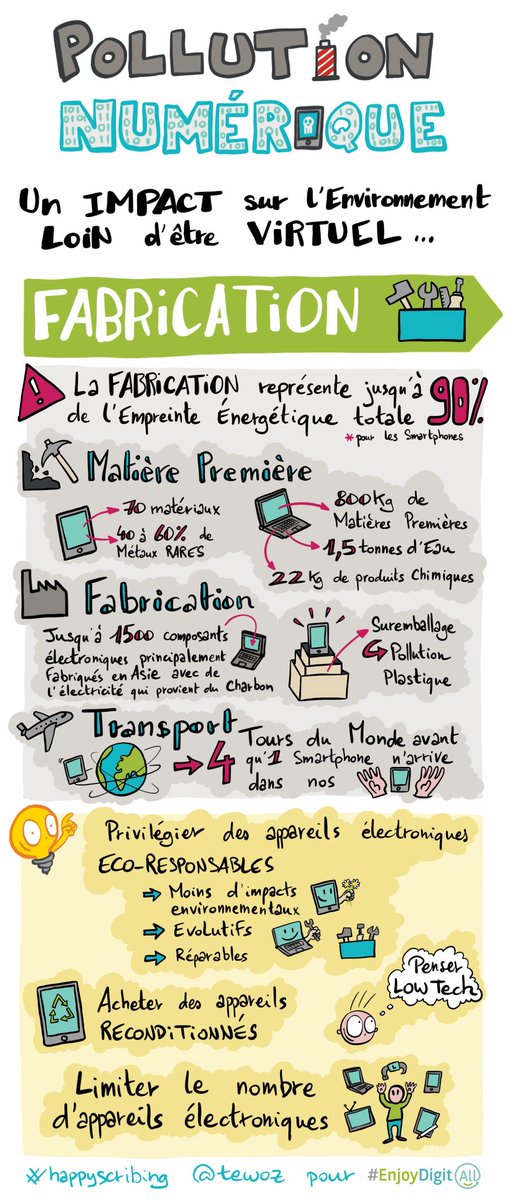 POLLUTION
NUMÉRIQUE
Un IMPACT sur l'Environnement
LOIN d'être VIRTUEL ...
FABRICATION
La FABRICATION représente jusqu'à 90%
de l'Empreinte Énergétique totale
* pour les Smartphones
Matière Première
70 matériaux
40 à 60% de
Métaux RARES
800Kg de
Matières Premières
1,5 tonnes d'Eau
22 Kg de produits Chimiques
Fabrication
Jusqu'à 1500 composants
électroniques principalement
Fabriqués en Asie avec de
l'électricité qui provient du Charbon
Suremballage
Pollution
Plastique
Transport
4 Tours du Monde avant
qu'1 Smartphone n'arrive
dans nos
Privilégier des appareils électroniques
ECO-RESPONSABLES
Moins d'impacts
environnementaux
Evolutifs
Réparables
Penser
LOW Tech
Acheter des appareils
RECONDITIONNÉS
Limiter le nombre
d'appareils électroniques
#happyscribing @tewoz pour #EnjoyDigitAll